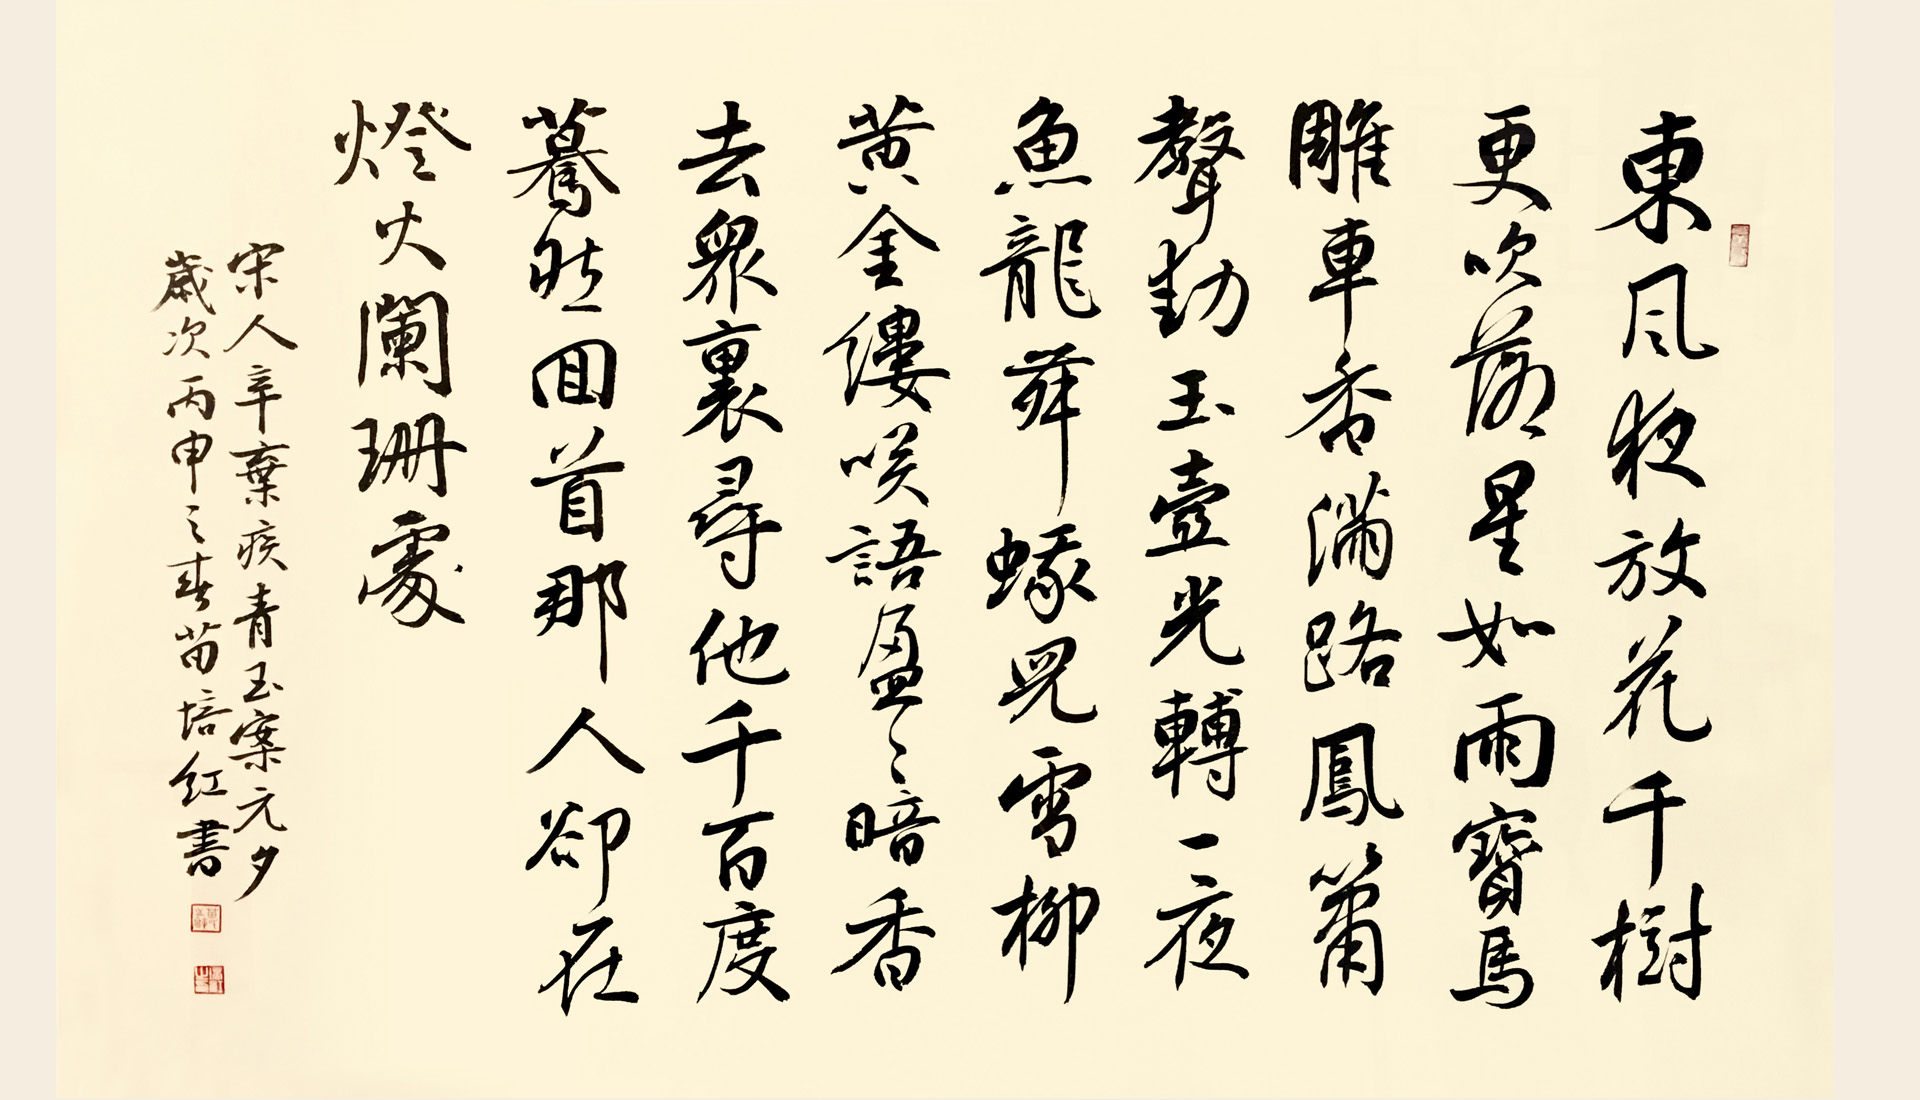 東風夜放花千樹
更吹落星如雨寶馬
雕車香滿路鳳簫
聲動玉壺光轉一夜
魚龍舞蛾兒雪柳
黄金縷咲語盈〻暗香
去衆裏尋他千百度
驀然回首那人卻在
燈火闌珊處
宋人辛棄疾青玉案元夕
歲次丙申之春苗培红書